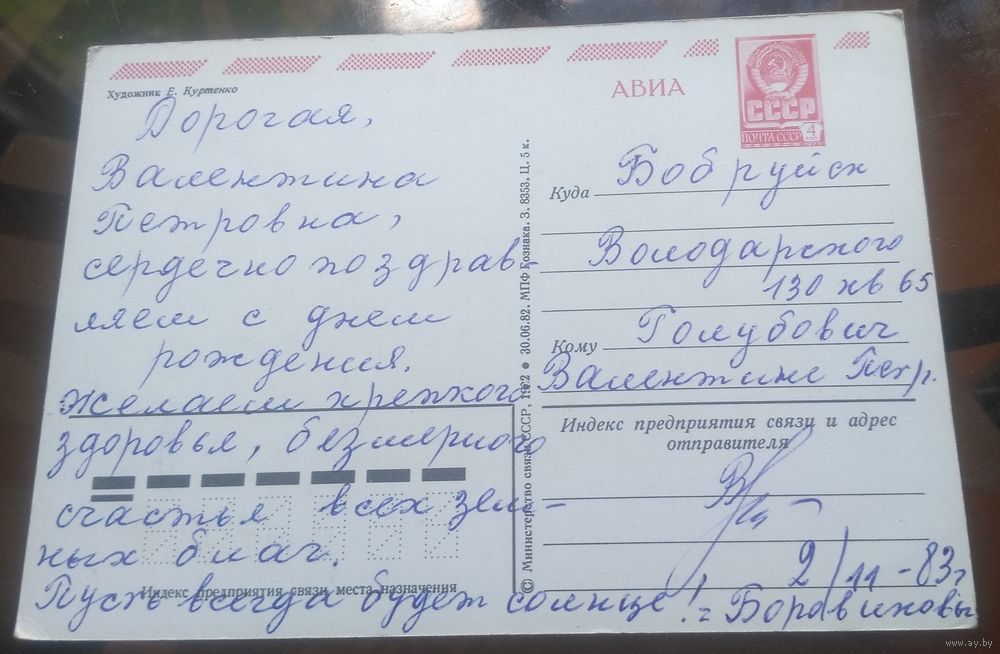 Художник Е. Куртенко
Дорогая,
Валентина
Петровна,
сердечно поздрав-
ляем с днем
рождения.
Желаем крепкого
здоровья, безмерного
счастья всех зем-
ных благ.
Индекс предприятия связи места назначения
Пусть всегда будет солнце!
© Министерство связи СССР, 1982 • 30.06.82. МПФ Гознака. З. 8353. Ц. 5 к.
АВИА
СССР
ПОЧТА СССР
4
Куда Бобруйск
Володарского
130 кв 65
Кому Голубович
Валентине Петр.
Индекс предприятия связи и адрес
отправителя
2/11-83г
Боравиковы
www.ay.by